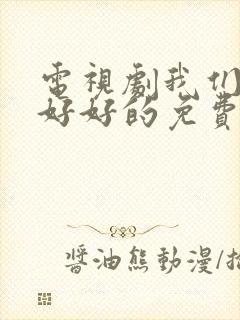 電視劇我们
好好的免費
醬油熊動漫/